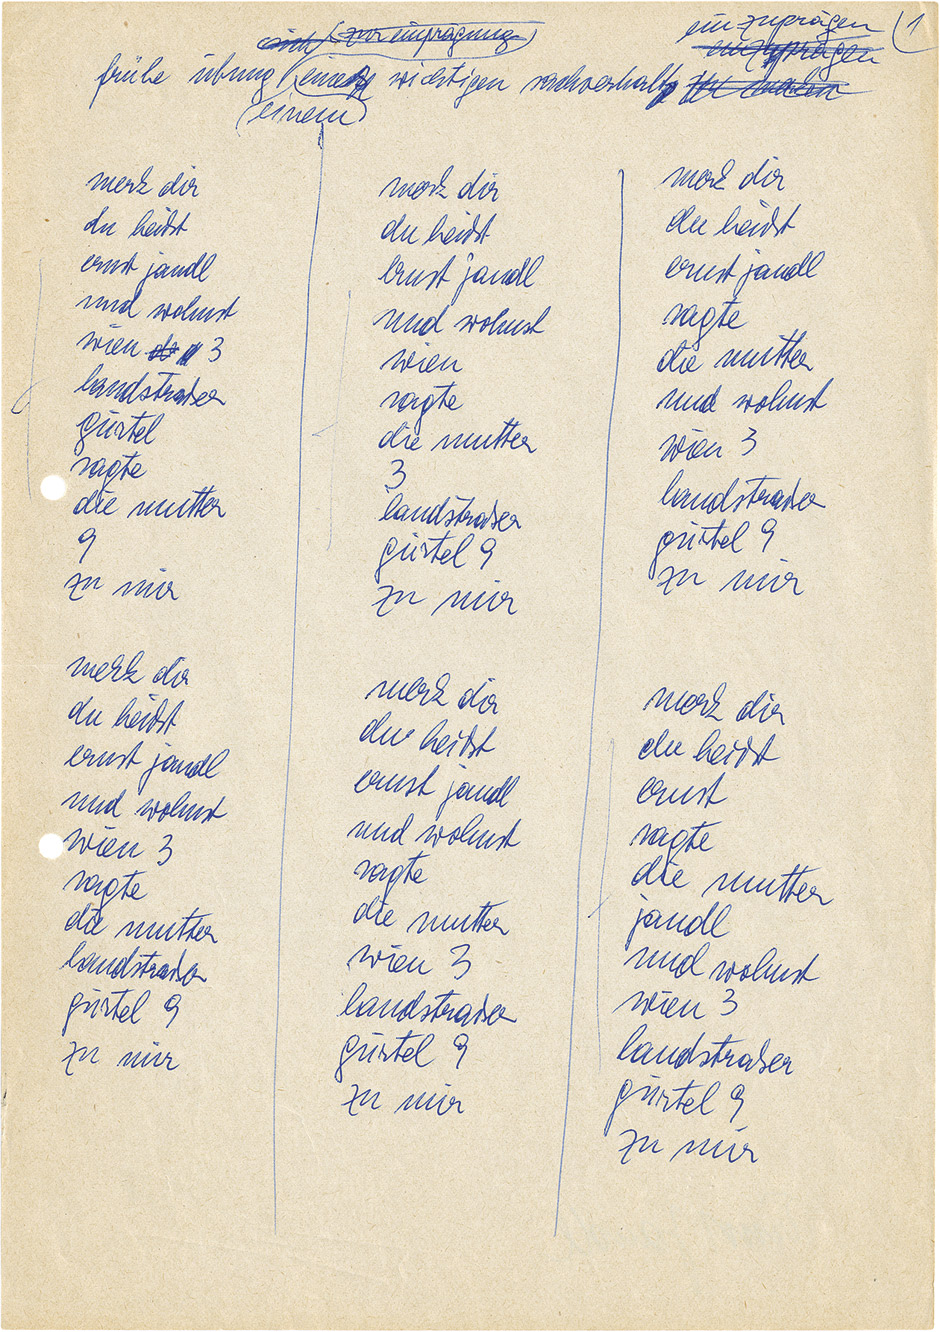 zur einprägung
einzuprägen
1
einzuprägen
frühe übung wichtigen sachverhalt
(einem)
merk dir
du heißt
ernst jandl
und wohnst
wien 3
landstraßer
gürtel
sagte
die mutter
9
zu mir
merk dir
du heißt
ernst jandl
und wohnst
wien 3
sagte
die mutter
landstraßer
gürtel 9
zu mir
merk dir
du heißt
ernst jandl
und wohnst
wien
sagte
die mutter
3
landstraßer
gürtel 9
zu mir
merk dir
du heißt
ernst jandl
und wohnst
sagte
die mutter
wien 3
landstraßer
gürtel 9
zu mir
merk dir
du heißt
ernst jandl
sagte
die mutter
und wohnst
wien 3
landstraßer
gürtel 9
zu mir
merk dir
du heißt
ernst
sagte
die mutter
jandl
und wohnst
wien 3
landstraßer
gürtel 9
zu mir